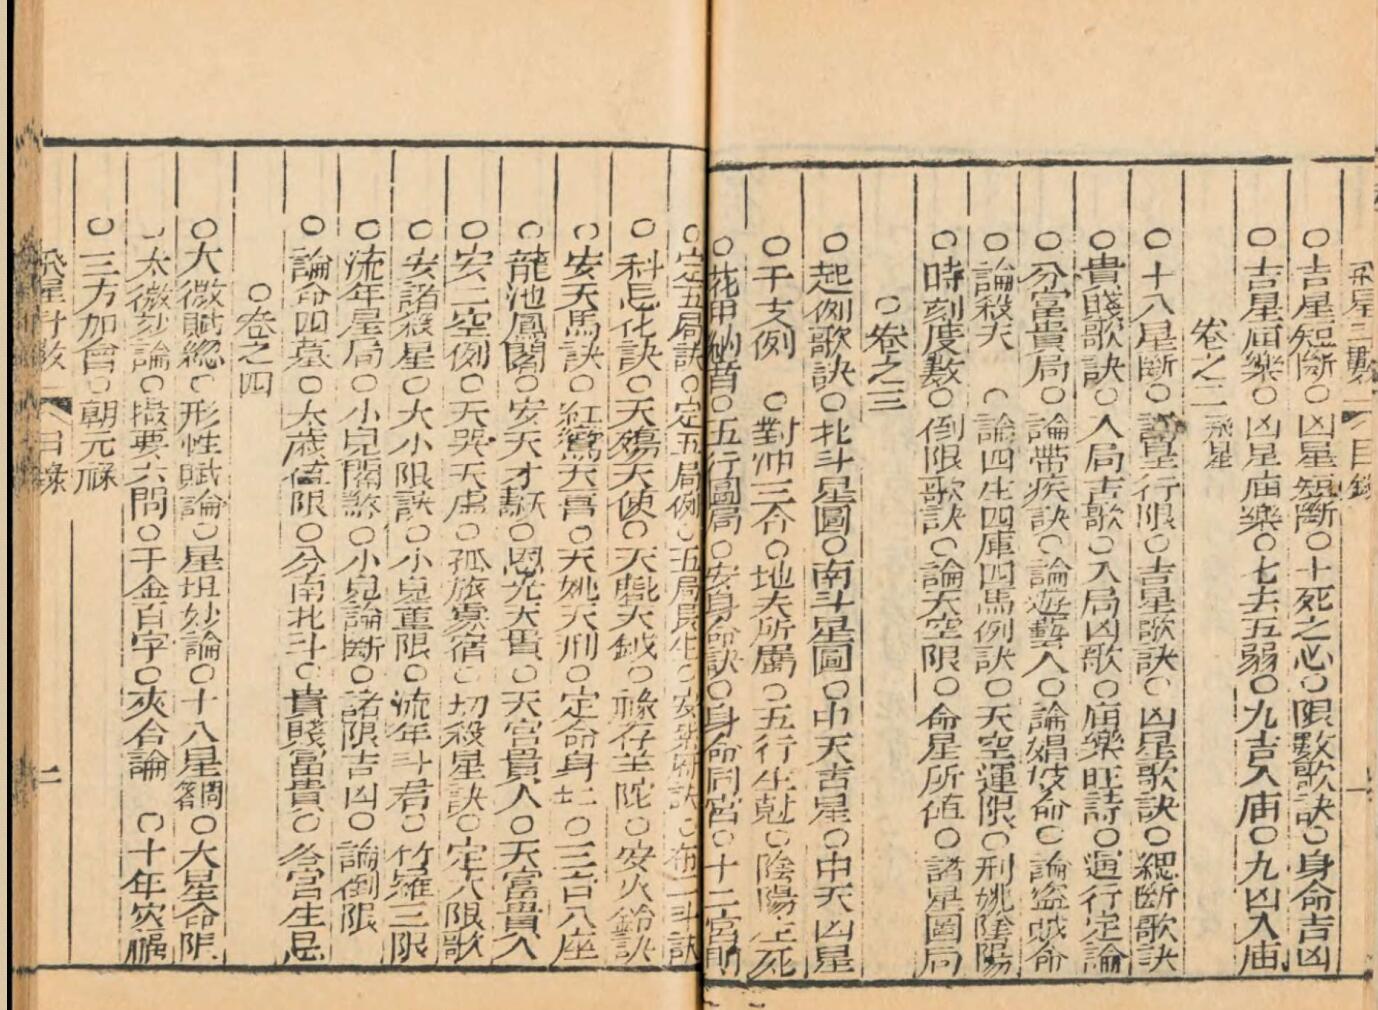 飛星二數 目錄 一
○吉星短斷○凶星短斷○十死之心○限數歌訣○身命吉凶
○吉星庙樂○凶星庙樂○七去五弱○九吉入庙○九凶入庙
卷之二 飛星
○十八星斷○諸星行限○吉星歌訣○凶星歌訣○總斷歌訣
○貴賤歌訣○入局吉歌○入局凶歌○庙樂旺詩○運行定論
○分富貴局○論帶疾訣○論遊藝人○論娼妓命○論盜賊命
○論殺夭 ○論四生四庫四馬例訣○天空運限○刑姚陰陽
○時刻度數○倒限歌訣○論天空限○命星所值○諸星圖局
○卷之三
○起例歌訣○北斗星圖○南斗星圖○中天吉星○中天凶星
○干支例 ○對冲三合○地支所屬○五行生尅○陰陽生死
○花甲納音○五行圖局○安身命訣○身命同宮○十二宮
○定五局訣○定五局例○五局長生○安紫 訣○布 斗訣
○科忌化訣○天殤天使○天魁天鉞○祿存羊陀○安火鈴訣
○安天馬訣○紅鸞天喜○天姚天刑○定命身 ○三台八座
○龍池鳳閣○安天才壽○恩光天貴○天官貴人○天富貴人
○安二空例○天哭天虛○孤旅寡宿○切殺星訣○定八限歌
○安諸殺星○大小限訣○小兒童限○流年斗君○竹羅三限
○流年星局○小兒關煞○小兒論斷○諸限吉凶○論倒限
○論命四墓○太歲值限○分南北斗○貴賤富貴○各宮生忌
○卷之四
○大微賦總○形性賦論○星垣妙論○十八星 ○大星命限
○太微妙論○撮要六問○千金百字○夾合論 ○十年灾福
○三方加會○朝元祿
飛星斗數 目錄 二